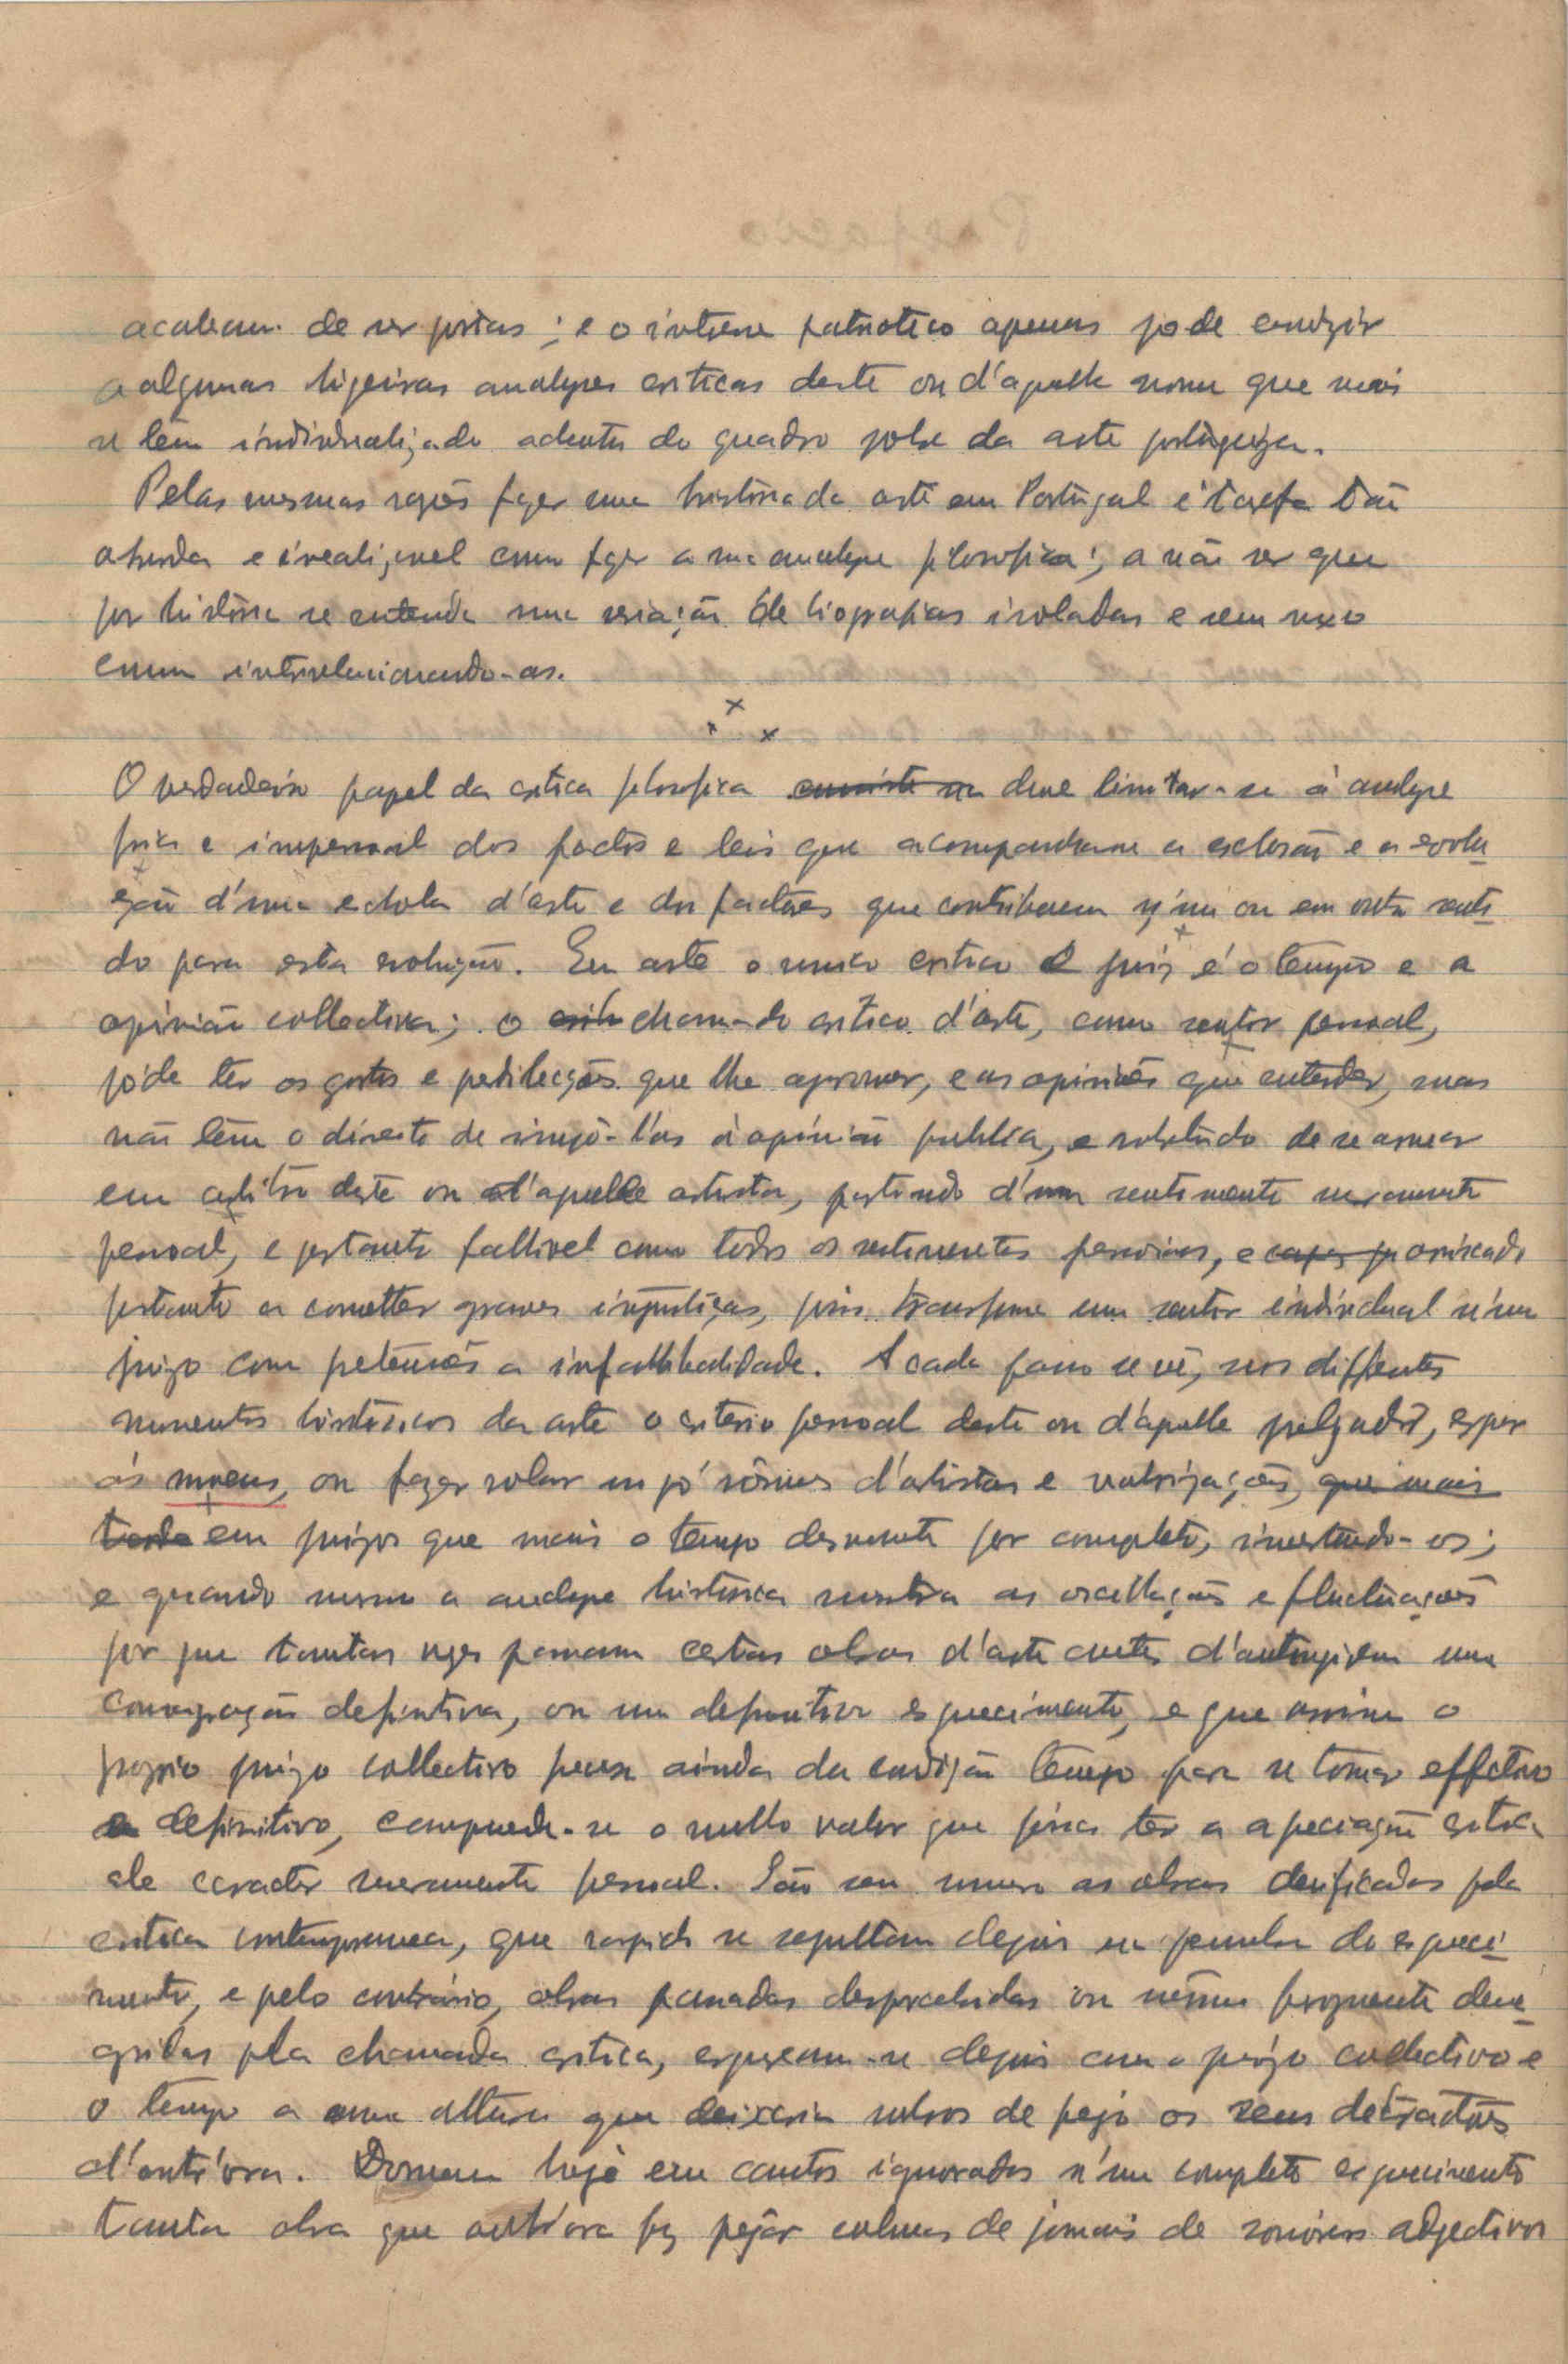 acabam de ser postas; e o interesse patriotico apenas pode conduzir
a algumas ligeiras analyses criticas deste ou d'aquelle nome que mais
se têm individualizado adentro do quadro pobre da arte portugueza.
Pelas mesmas rasões fazer uma história da arte em Portugal é tarefa tão
absurda e irealizavel como fazer a sua analyse filosofica; a não ser que
por história se entenda uma seriação de biografias isoladas e sem nexo
comum interrelacionando-as.
x x x
O verdadeiro papel da critica filosofica consiste na deve limitar-se á analyse
fria e impessoal dos factos e leis que acompanharam a eclosão e a evolu
ção d'uma escola d'arte e dos factores que contribuem n'um ou em outro senti
do para esta evolução. Em arte o unico critico e juiz é o tempo e a
opinião collectiva; o chamado critico d'arte, como sentir pessoal,
póde ter os gostos e predilecções que lhe aprouver, e as opiniões que entender, mas
não têm o direito de impô-l'as á opinião publica, e sobretudo de se arvorar
em arbitro deste ou d'aquelle artista, partindo d'um sentimento meramente
pessoal, e portanto fallivel como todos os sentimentos pessoaes, e arriscado
portanto a cometter graves injustiças, pois transforma um sentir individual n'um
juizo com pretensões a infallibilidade. A cada passo se vê, nos differentes
momentos históricos da arte o criterio pessoal deste ou d'aquelle julgador, erguer
ás nuvens, ou fazer rolar no pó nomes d'artistas e valorizações, que mais
tarde em juizos que mais o tempo desmente por completo, invertendo-os;
e quando mesmo a analyse histórica mostra as oscillações e fluctuações
por que tantas vezes passam certas obras d'arte antes d'attingirem uma
consagração definitiva, ou um definitivo esquecimento, e que assim o
proprio juizo collectivo precisa ainda da condição tempo para se tornar effectivo
e definitivo, comprehende-se o nullo valor que possa ter a apreciação critica
de caracter meramente pessoal. São sem numero as obras deificadas pela
critica contemporanea, que rapido se sepultam depois na penumbra do esqueci
mento, e pelo contrário, obras passadas despercebidas ou mesmo fortemente dene
gridas pela chamada critica, ergueram-se depois com o juizo collectivo e
o tempo a uma altura que deixaria rubros de pejo os seus detractores
d'outr'ora. Dormem hoje em cantos ignorados n'um completo esquecimento
tanta obra que outr'ora fez pejar colunas de jornais de sonóros adjectivos